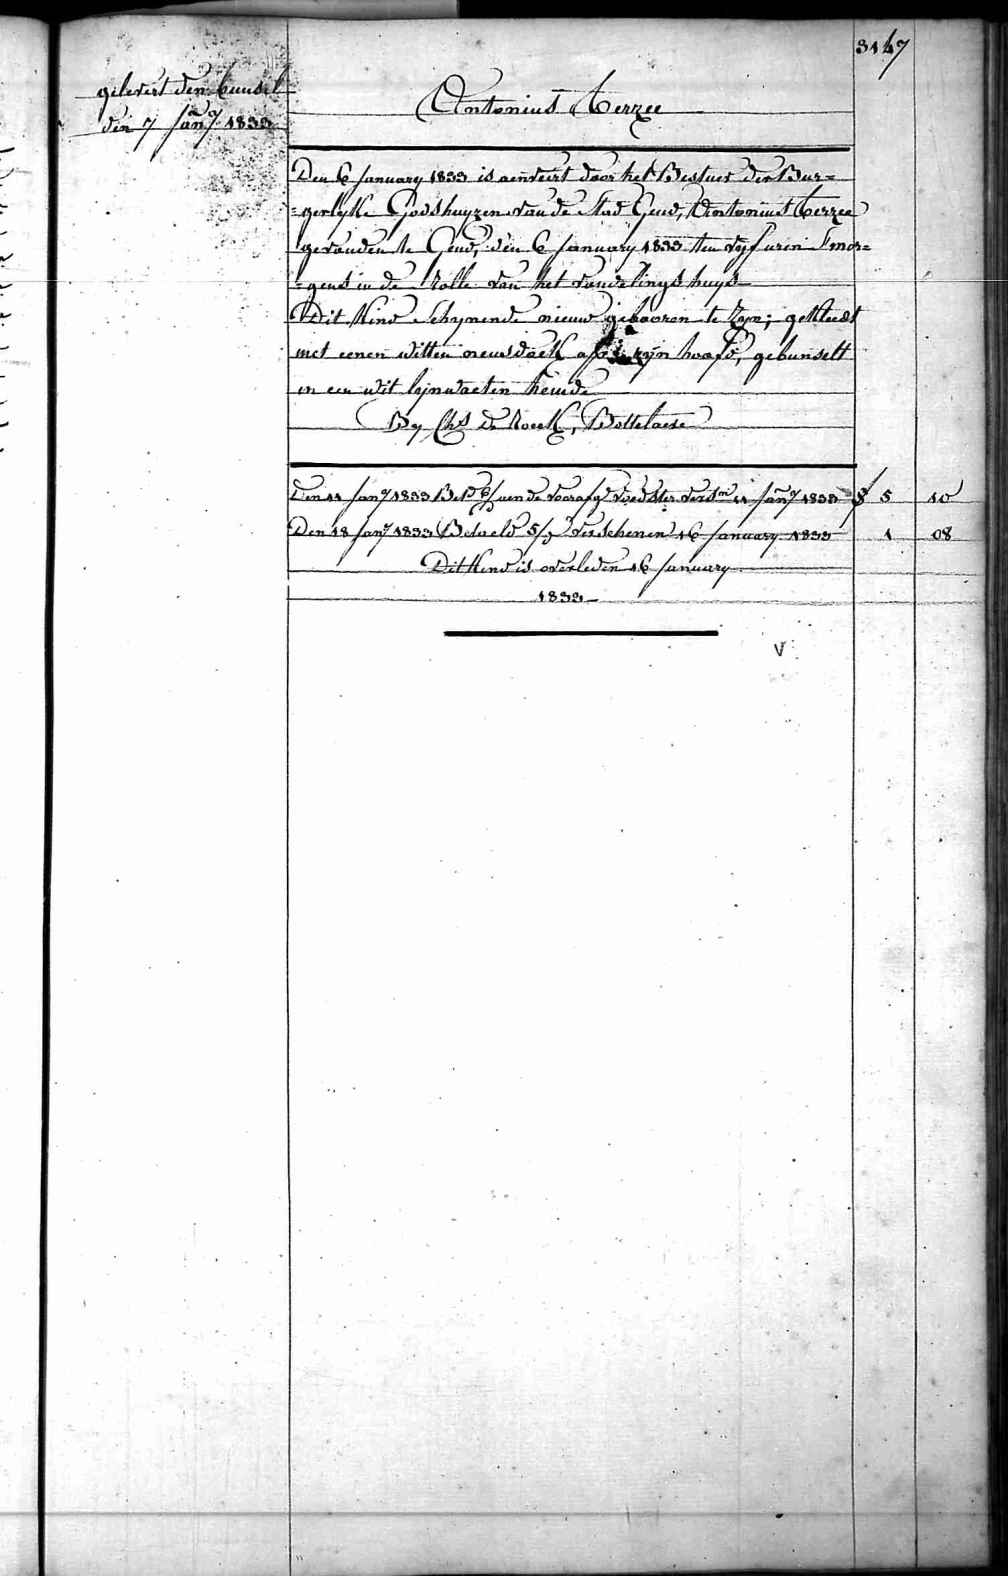 3147
gelevert den bunsel
den 7 Jany 1833
Antonius Cerzee
Den 6 January 1833 is aenveert door het Bestier der Bur=
=gerlyke Godshuyzen van de Stad Gend, Antonius Cerzee
gevonden te Gend, den 6 January 1833 ten vyf uren Smor=
=gens in de Rolle van het vondelings huys
Dit Kind Schynende nieuw gebooren te zyn; gekleedt
met eenen witten neusdoek zyn hoofd, gebunselt
in een wit lynwaeten hemde
By Chs De Roeck, Bottelaere
Den 11 Jany 1833 aen de voorafge voedster 11 Jany 1833 5 10
Den 18 Jany 1833 Betaeld 5/ verschenen 16 January 1833 1 08
Dit Kind is overleden 16 January
1833
V